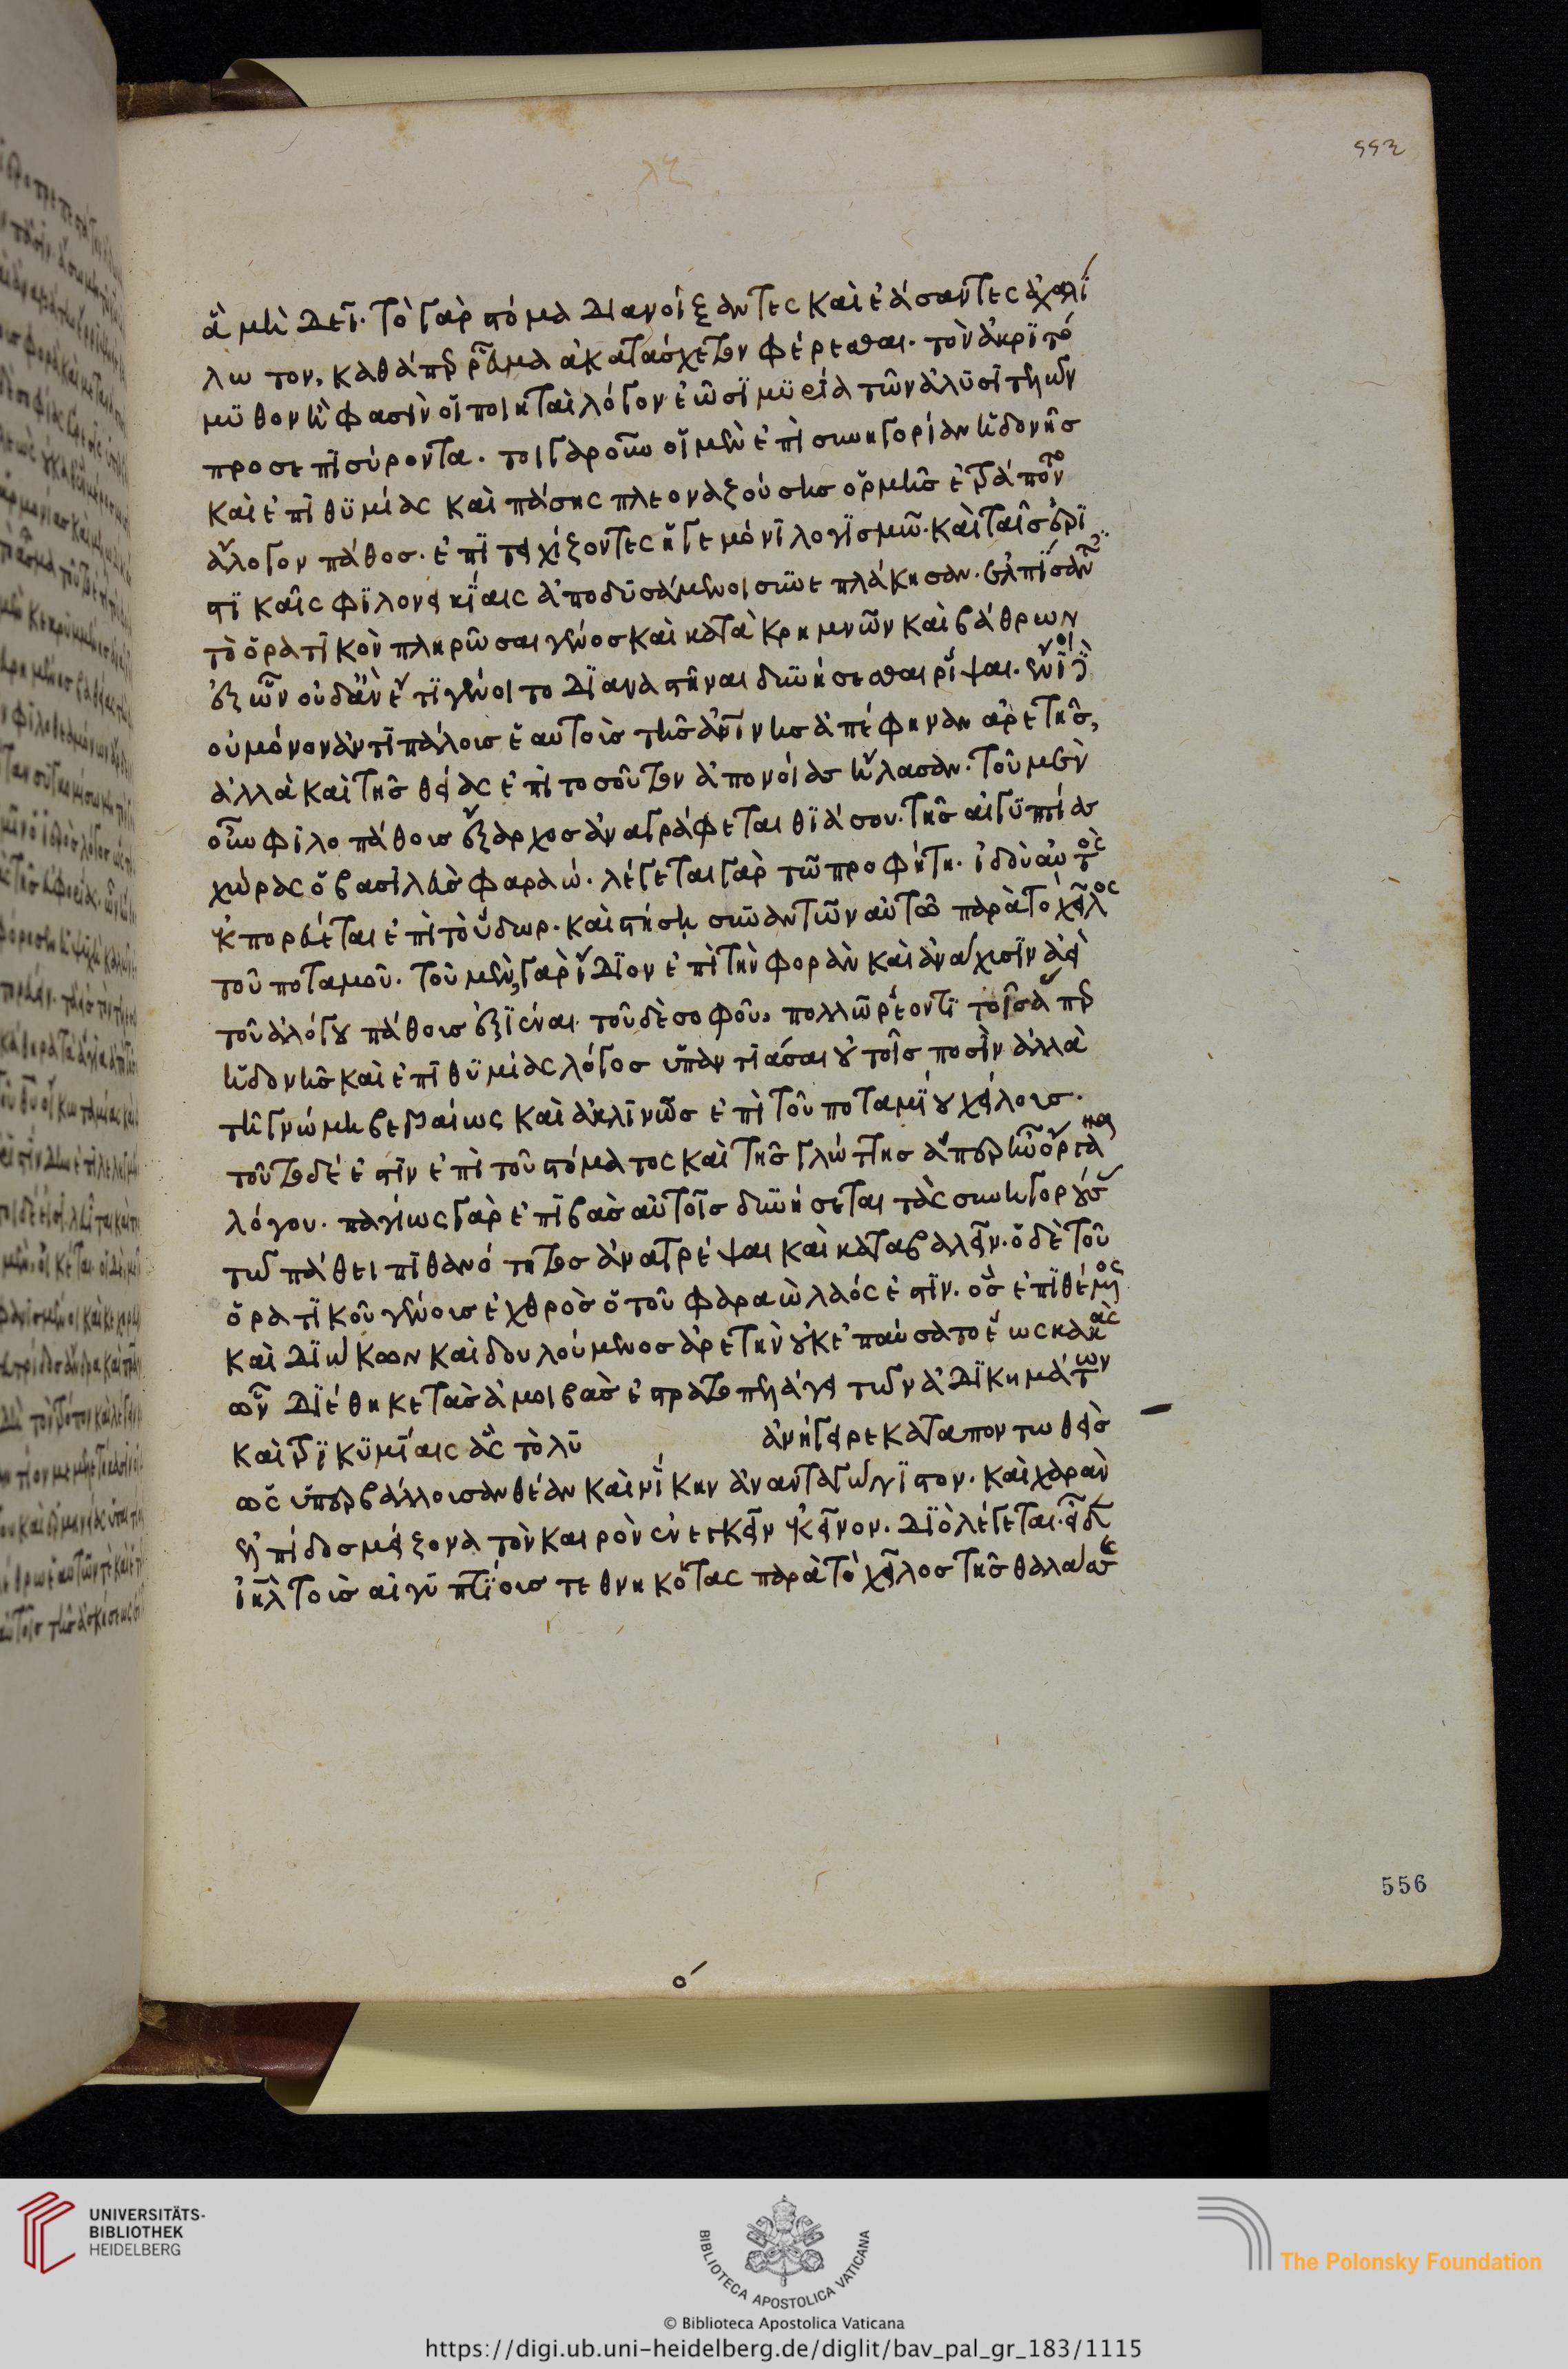 ἃ μὴ δεῖ. τὸ γὰρ στόμα διανοίξαντες καὶ ἐάσαντες ἀχαλί
λωτον, καθάπερ ῥεῦμα ἀκατάσχετον φέρεσθαι. τὸν ἀκριτό
μυθον ἧ φασὶν οἱ ποιηταὶ λόγον ἐῶσι μυρία τῶν ἀλυσιτελῶν
προσεπισύροντα. τοιγαροῦν οἱ μὲν ἐπὶ συνηγορίαν ἡδονῆς
καὶ ἐπιθυμίας καὶ πάσης πλεοναζούσης ὁρμῆς ἐτράποντο
ἄλογον πάθος. ἐπιτειχίζοντες ἡγεμόνι λογισμῶ. καὶ ταῖς ἐρι
στικαῖς φιλονεικίαις ἀποδυσάμενοι συνεπλάκησαν. ἐλπίσαντες
τὸ ὁρατικὸν πληρῶσαι γένος καὶ κατὰ κρημνῶν καὶ βάθρων
ἐξ ὧν οὐδ' ἂν ἔτι γένοιτο διαναστῆναι δυνήσεσθαι ῥίψαι. ἔνιοι δὲ
οὐ μόνον ἀντιπάλους ἑαυτοὺς τῆς ἀνθρωπίνης ἀπέφηναν ἀρετῆς,
ἀλλὰ καὶ τῆς θείας ἐπὶ τοσοῦτον ἀπονοίας ἤλασαν. τοῦ μὲν
οὖν φιλοπάθους ἔξαρχος ἀναγράφεται θιάσου. τῆς αἰγυπτίας
χώρας ὁ βασιλεὺς φαραώ. λέγεται γὰρ τῶ προφήτη. ἰδοὺ αὐτὸς
ἐκπορεύεται ἐπὶ τὸ ὕδωρ. καὶ στήση συναντῶν αὐτῶ παρὰ τὸ χεῖλος
τοῦ ποταμοῦ. τοῦ μὲν γὰρ ἴδιον ἐπὶ τὴν φορὰν καὶ ἀνάχυσιν ἀεὶ
τοῦ ἀλόγου πάθους ἐξιέναι. τοῦ δὲ σοφοῦ, πολλῶ ῥέοντι τοῖς ὑπὲρ
ἡδονῆς καὶ ἐπιθυμίας λόγος ὑπαντιάσαι οὐ τοῖς ποσὶν ἀλλὰ
τῆ γνώμη βεβαίως καὶ ἀκλινῶς ἐπὶ τοῦ ποταμίου χείλους.
τοῦτο δέ ἐστιν ἐπὶ τοῦ στόματος καὶ τῆς γλώττης ἅπερ ἦν ὄργανα
λόγου. παγίως γὰρ ἐπιβὰς αὐτοῖς δυνήσεται τὰς συνηγορούσας
τῶ πάθει πιθανότητος ἀνατρέψαι καὶ καταβαλεῖν. ὁ δὲ τοῦ
ὁρατικοῦ γένους ἐχθρὸς ὁ τοῦ φαραὼ λαός ἐστιν. ὃς ἐπιθέμενος
καὶ διώκων καὶ δουλούμενος ἀρετὴν οὐκ ἐπαύσατο ἕως κακὰς
ὧν διέθηκε τὰς ἀμοιβὰς εὕρατο πελάγει τῶν ἀδικημάτων
καὶ τρικυμίαις ἃς τὸ λυ ἀνήγειρε καταποντωθεὶς
ὡς ὑπερβάλλουσαν θέαν καὶ νίκην ἀνανταγώνιστον. καὶ χαρὰν
ἐλπίδος μείζονα τὸν καιρὸν ἐνεγκεῖν ἐκεῖνον. διὸ λέγεται. εἶδεν
ἰηλ τοὺς αἰγυπτίους τεθνηκότας παρὰ τὸ χεῖλος τῆς θαλάσσης
556
UNIVERSITÄTS-
BIBLIOTHEK
HEIDELBERG
BIBLIOTECA APOSTOLICA VATICANA
The Polonsky Foundation
© Biblioteca Apostolica Vaticana
https://digi.ub.uni-heidelberg.de/diglit/bav_pal_gr_183/1115